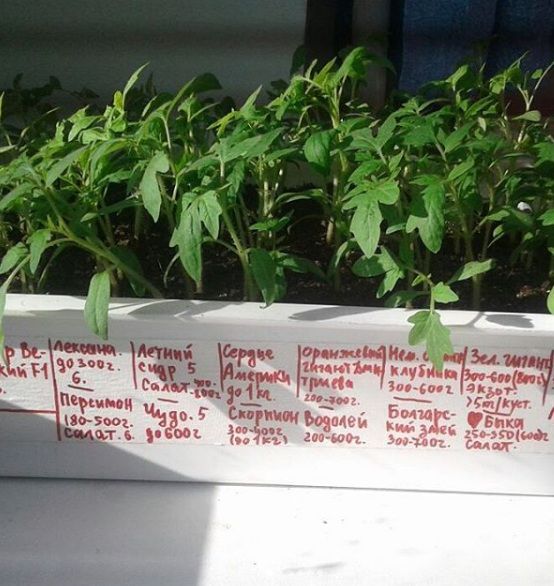 р Ве-
кий F1
Лексана.
до 300г.
6.
Персимон
180-500г.
Салат. 6.
Летний
сидр 5
Салат.
Чудо. 5
до 600г
Сердце
Америки
до 1кг.
Скорпион
300-400г
(до 1кг)
Оранжевый
гигант
200-700г.
Водолей
200-600г.
Нем.
клубника
300-600г
Болгарс-
кий змей
300-700г.
Зел. гигант
300-600
Экзот.
>5т/куст.
♥ Быка
250-350(600г)
Салат.